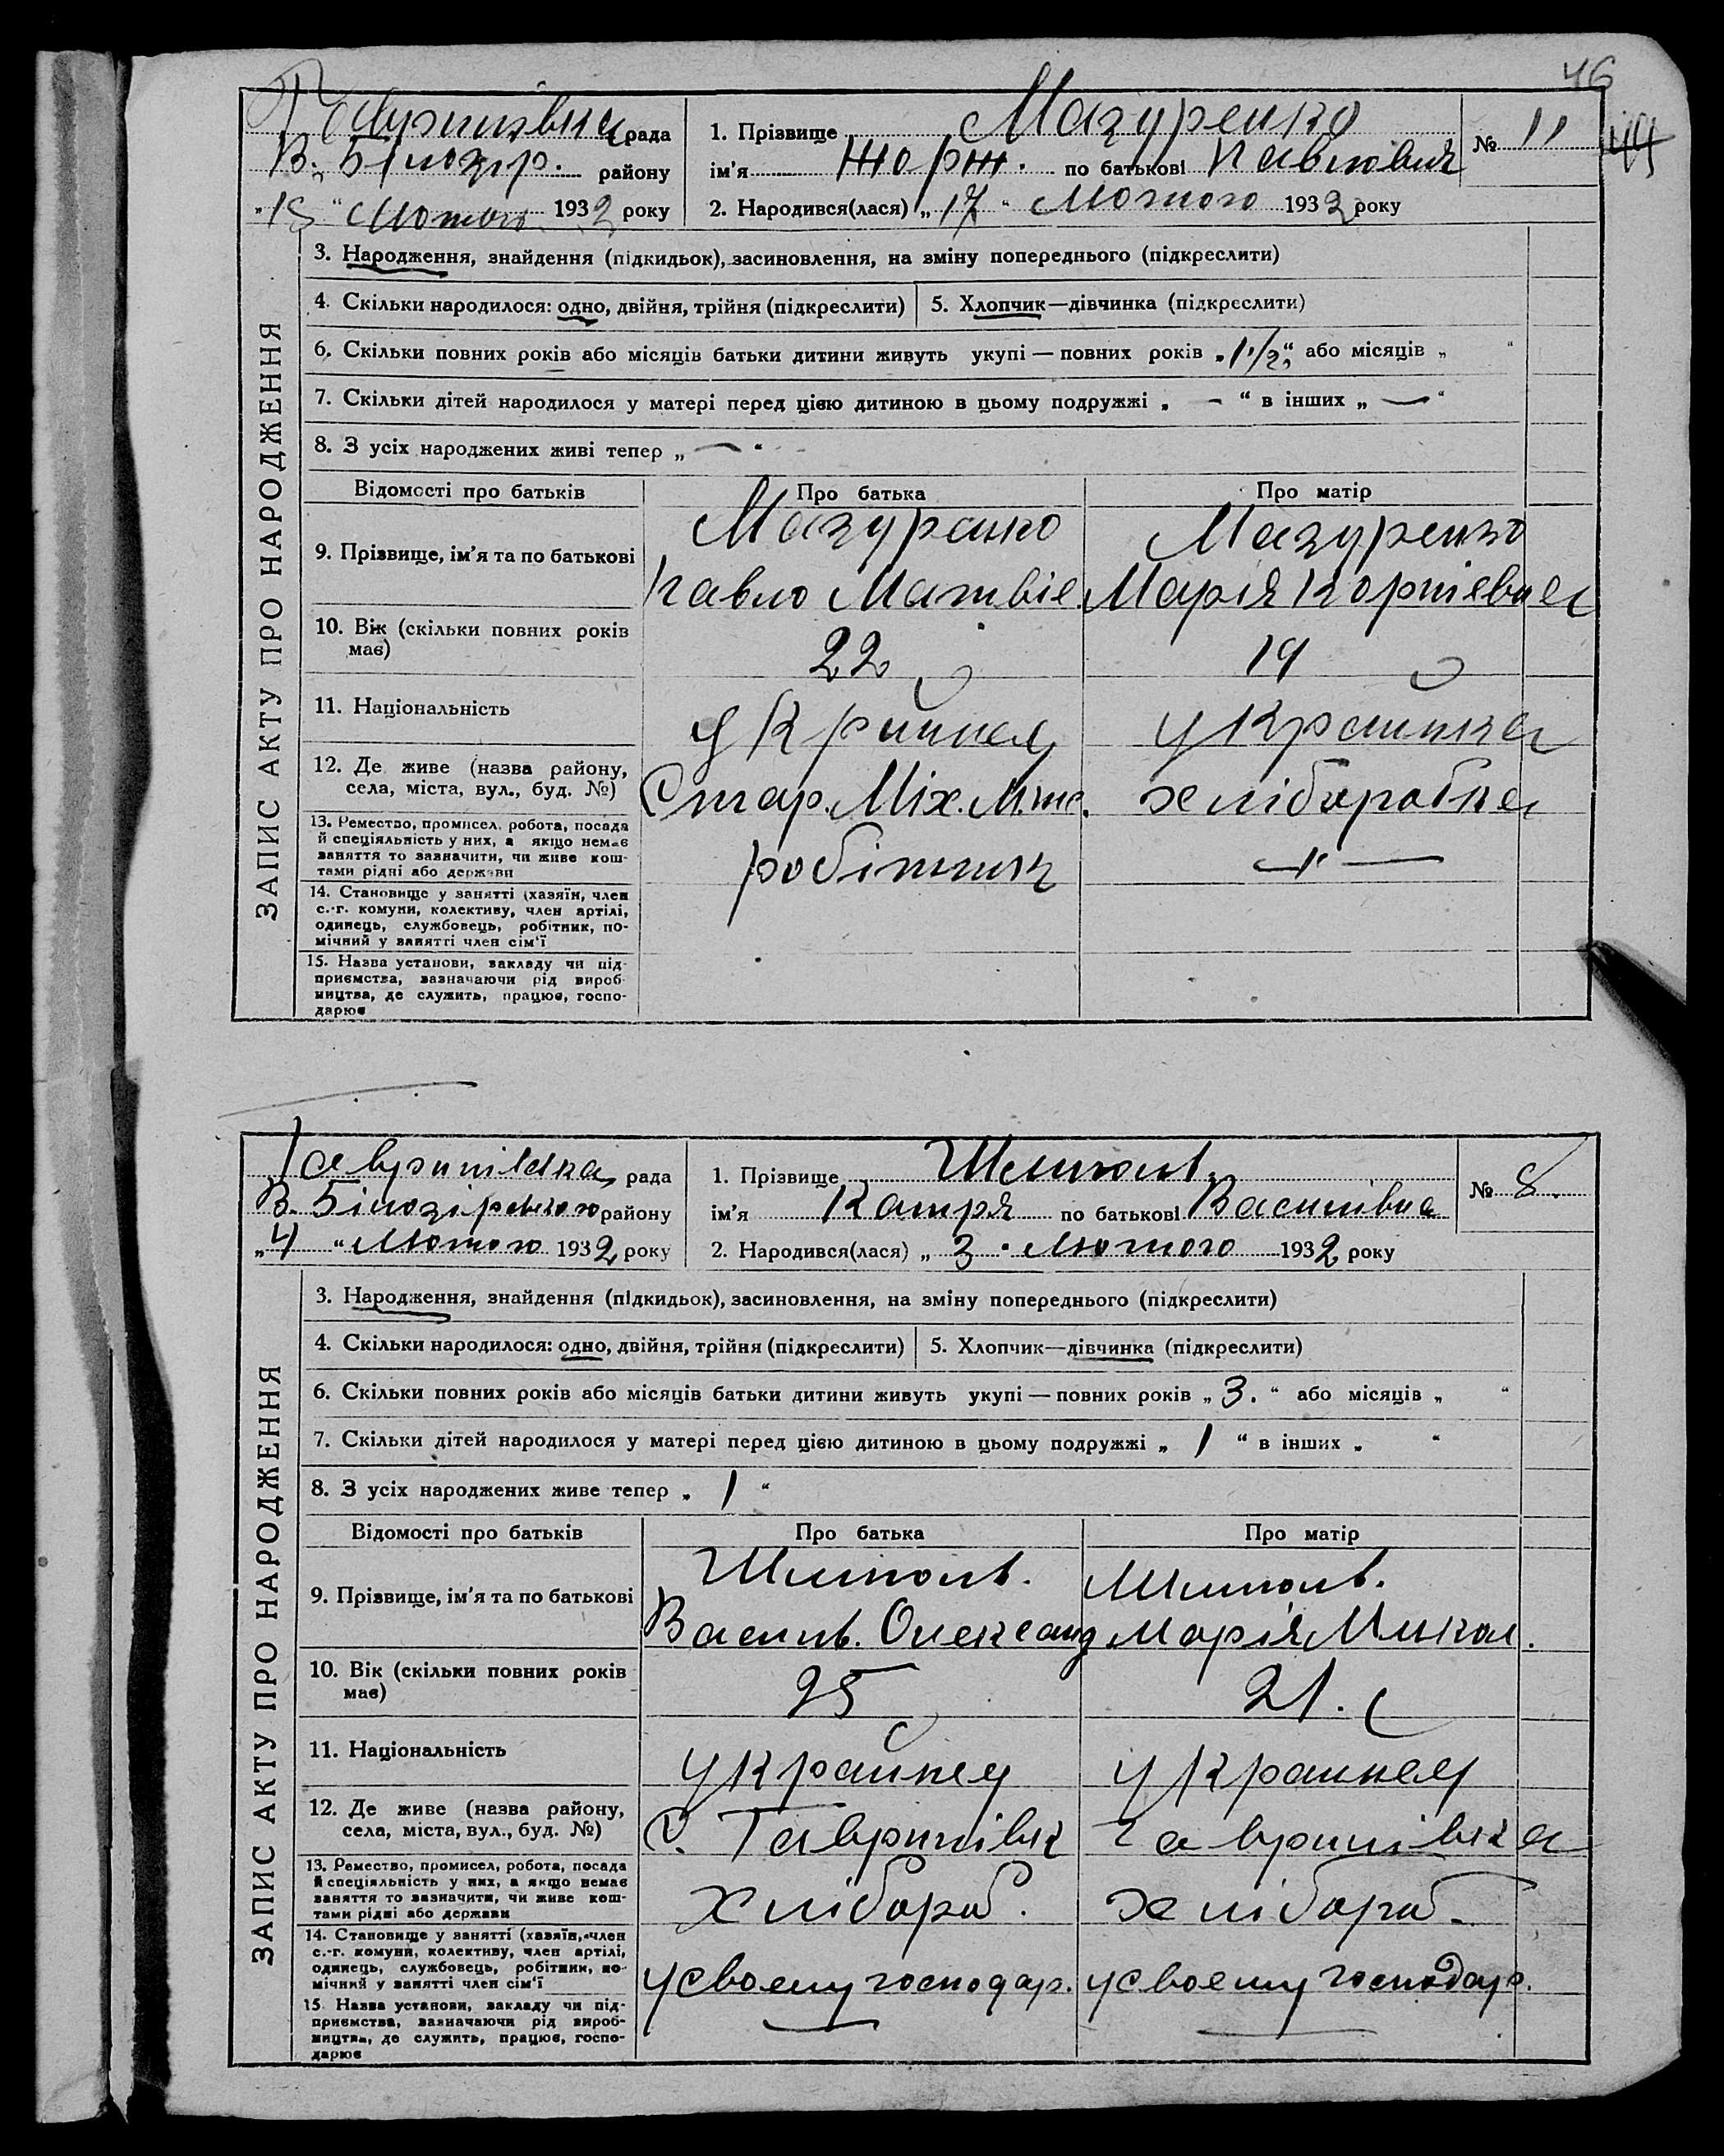 46
Гаврилівка рада
В. Білозір. району
"18" Лютого 1932 року
1. Прізвище Мазуренко
ім'я Жорж. по батькові Павлович
2. Народився(лася) „17" Лютого 1932 року
№ 11
44
ЗАПИС АКТУ ПРО НАРОДЖЕННЯ
3. Народження, знайдення (підкидьок), засиновлення, на зміну попереднього (підкреслити)
4. Скільки народилося: одно, двійня, трійня (підкреслити)
5. Хлопчик—дівчинка (підкреслити)
6. Скільки повних років або місяців батьки дитини живуть укупі — повних років „1 1/2" або місяців „ "
7. Скільки дітей народилося у матері перед цією дитиною в цьому подружжі „ — " в інших „ — "
8. З усіх народжених живі тепер „ — "
Відомості про батьків
Про батька
Про матір
9. Прізвище, ім'я та по батькові
Мазуренко
Павло Матвіе.
Мазуренко
Марія Корніевна
10. Вік (скільки повних років
має)
22
19
11. Національність
україинка
12. Де живе (назва району,
села, міста, вул., буд. №)
Стар. Міх.
хліборобка
13. Ремество, промисел, робота, посада
й спеціяльність у них, а якщо немає
заняття то зазначити, чи живе кош-
тами рідні або держави
робітник
—"—
14. Становище у занятті (хазяїн, член
с.-г. комуни, колективу, член артілі,
одинець, службовець, робітник, по-
мічний у занятті член сім'ї
15. Назва установи, закладу чи під-
приємства, зазначаючи рід вироб-
ництва, де служить, працює, госпо-
дарює
Гаврилівка рада
В. Білозірського району
„4" Лютого 1932 року
1. Прізвище Шмиголь.
ім'я Катря по батькові Василівна
2. Народився(лася) „3" Лютого 1932 року
№ 8.
ЗАПИС АКТУ ПРО НАРОДЖЕННЯ
3. Народження, знайдення (підкидьок), засиновлення, на зміну попереднього (підкреслити)
4. Скільки народилося: одно, двійня, трійня (підкреслити)
5. Хлопчик—дівчинка (підкреслити)
6. Скільки повних років або місяців батьки дитини живуть укупі — повних років „3." або місяців „ "
7. Скільки дітей народилося у матері перед цією дитиною в цьому подружжі „1" в інших „ "
8. З усіх народжених живе тепер „1"
Відомості про батьків
Про батька
Про матір
9. Прізвище, ім'я та по батькові
Василь. Олександ
Марія Микол.
10. Вік (скільки повних років
має)
25
21.
11. Національність
українец
українец
12. Де живе (назва району,
села, міста, вул., буд. №)
С. Гаврилівк
Гаврилівка
13. Ремество, промисел, робота, посада
й спеціяльність у них, а якщо немає
заняття то зазначити, чи живе кош-
тами рідні або держави
хлібороб.
хлібороб.
14. Становище у занятті (хазяїн, член
с.-г. комуни, колективу, член артілі,
одинець, службовець, робітник, по-
мічний у занятті член сім'ї
у своему господар.
у своему господар.
15. Назва установи, закладу чи під-
приємства, зазначаючи рід вироб-
ництва, де служить, працює, госпо-
дарює